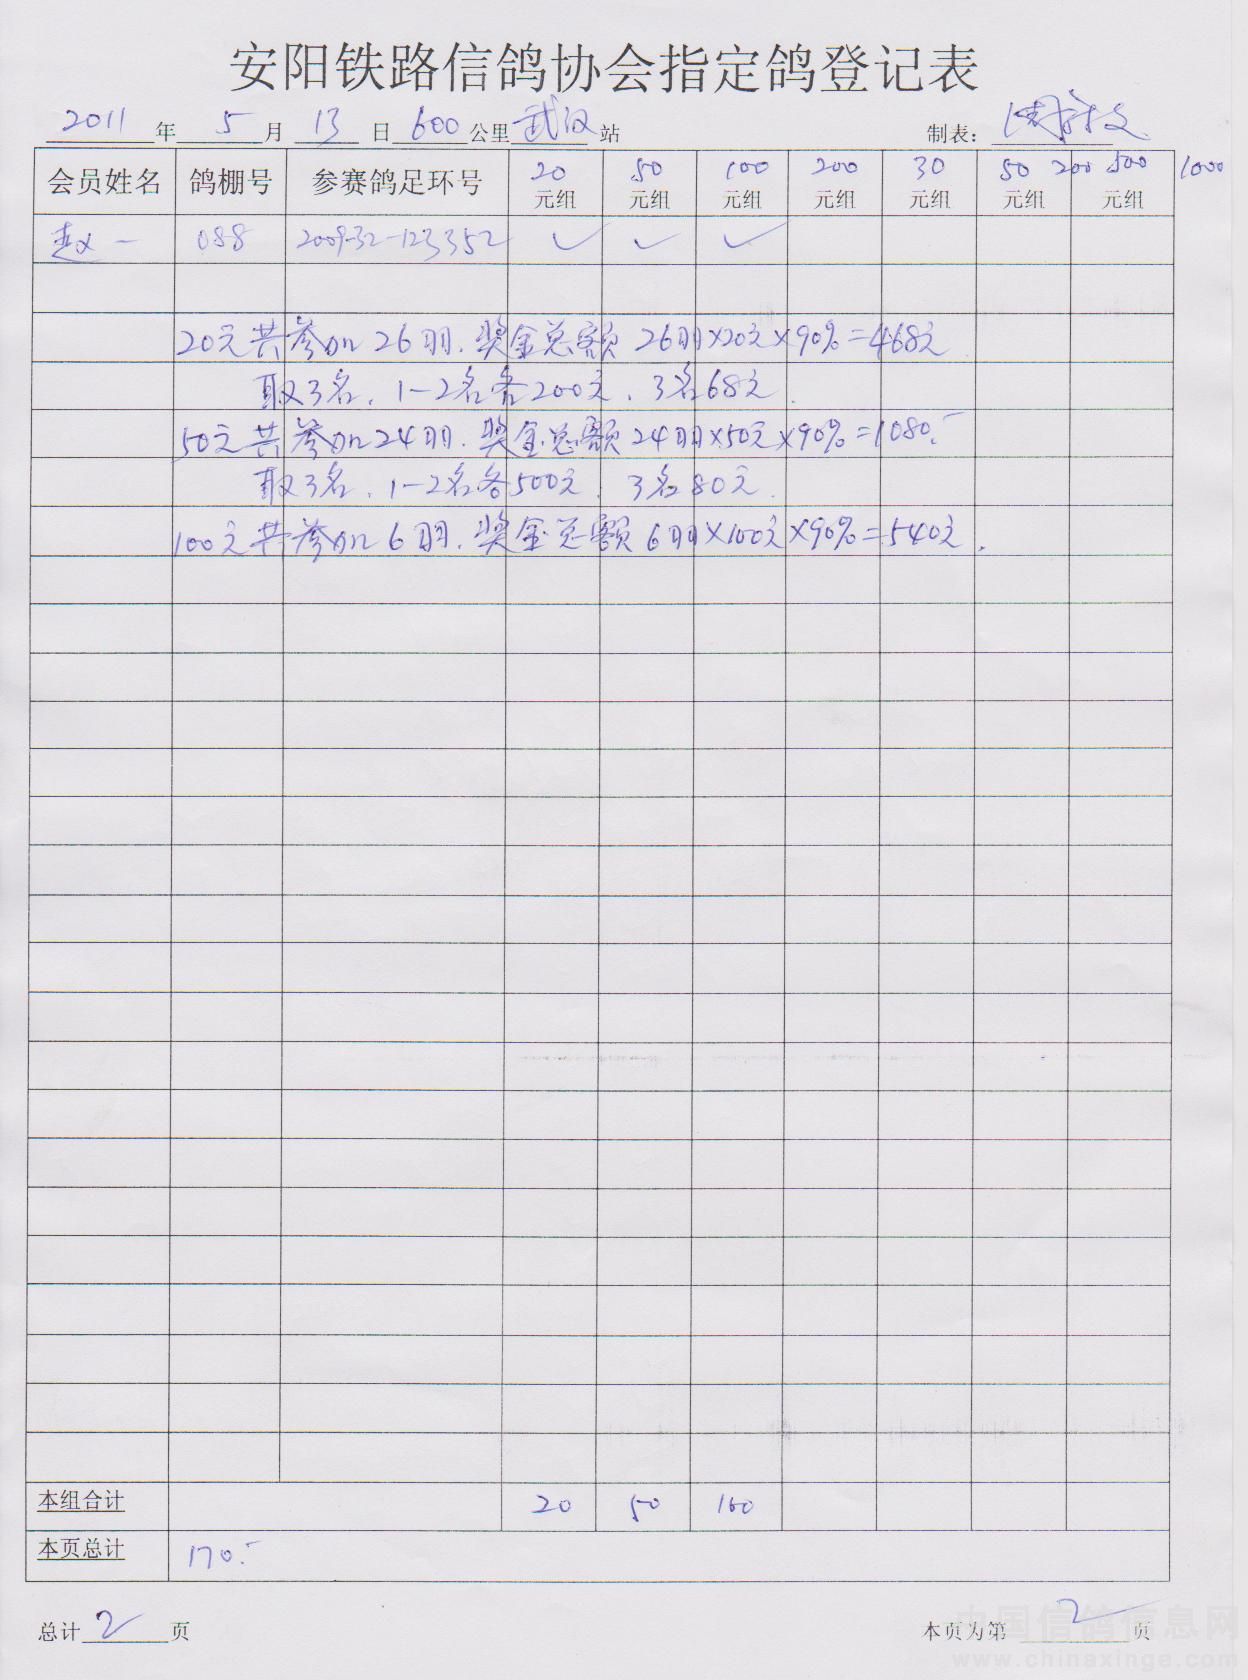 安阳铁路信鸽协会指定鸽登记表
2011 年 5 月 13 日 600 公里 武汉 站 制表:
会员姓名 鸽棚号 参赛鸽足环号 20元组 50元组 100元组 200元组 30元组 50元组 200 500元组 1000
赵一 088 2009-32-123352 ✓ ✓ ✓
20元共参加26羽.奖金总额26羽×20元×90%=468元
取3名.1-2名各200元.3名68元.
50元共参加24羽.奖金总额24羽×50元×90%=1080.-
取3名.1-2名各500元.3名80元.
100元共参加6羽.奖金总额6羽×100元×90%=540元.
本组合计 20 50 100
本页总计 170.-
总计 2 页 本页为第 2 页
中国信鸽信息网
www.chinaxinge.com